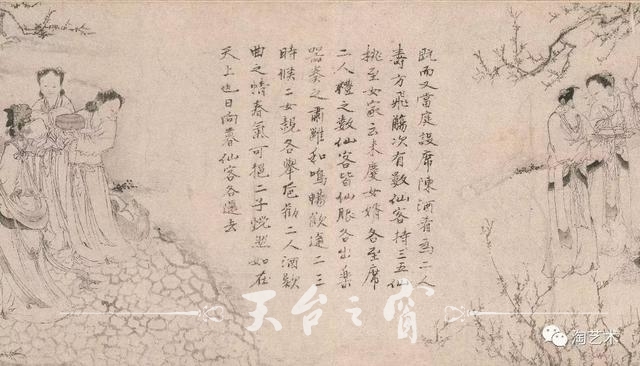 既而又當庭設席陳酒肴為二人
壽方飛觴次有數仙客持三五仙
桃至女家云来慶女婿各至席
二人禮之數仙客皆仙服各出樂
器奏之肅雝和鳴暢歡逾二三
時候二女親各舉巵勸二人酒款
曲之情春氣可挹二子恍然如在
天上也日向暮仙客各還去
天台之窗
淘艺术